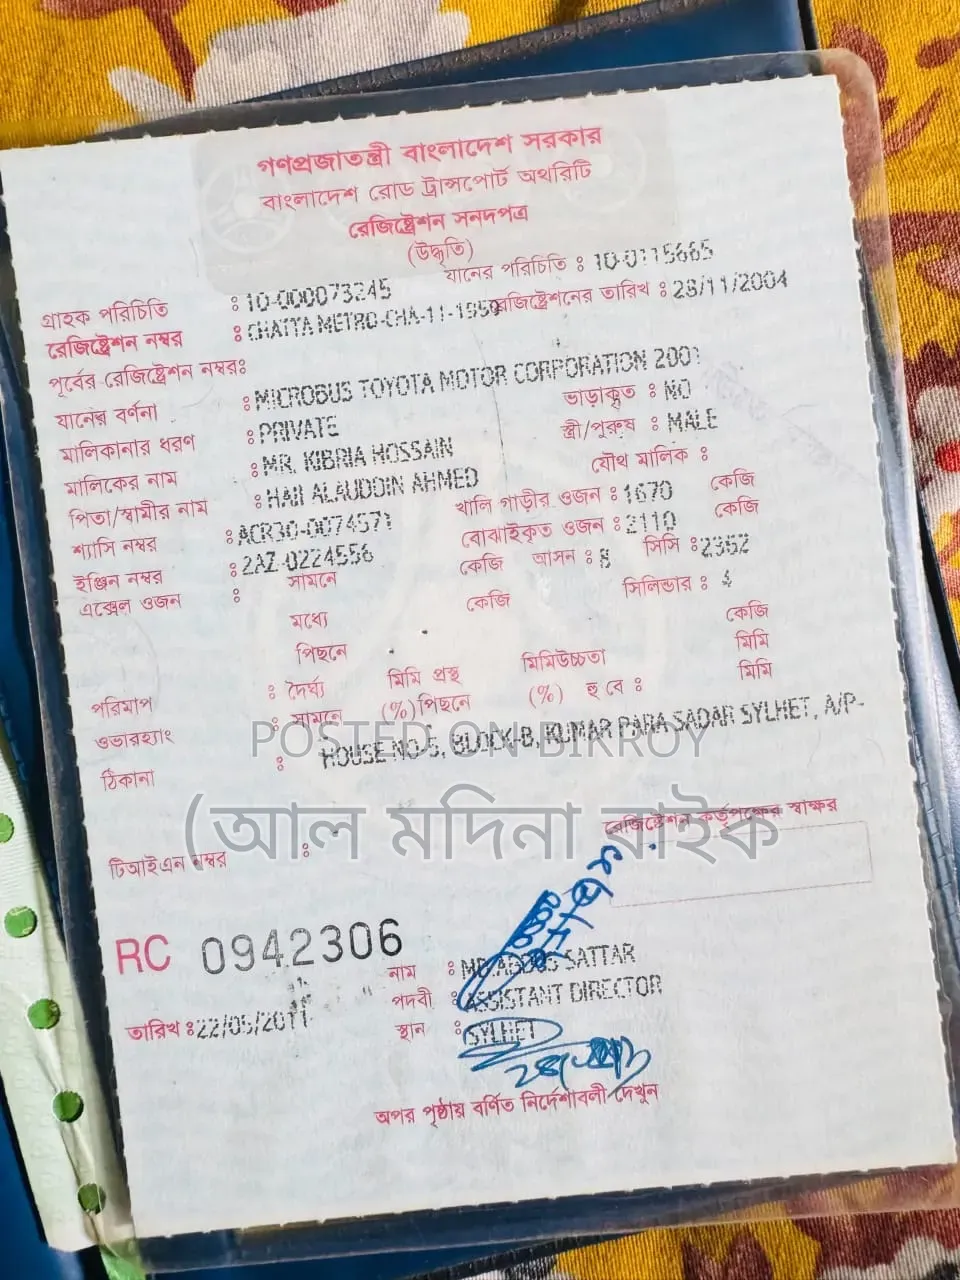 গণপ্রজাতন্ত্রী বাংলাদেশ সরকার
বাংলাদেশ রোড ট্রান্সপোর্ট অথরিটি
রেজিষ্ট্রেশন সনদপত্র
(উদ্ধৃতি)
গ্রাহক পরিচিতি : 10-000073245 যানের পরিচিতি : 10-0115665
রেজিষ্ট্রেশন নম্বর : CHATTA METRO-CHA-11-1959 রেজিষ্ট্রেশনের তারিখ : 28/11/2004
পূর্বের রেজিষ্ট্রেশন নম্বর:
যানের বর্ণনা : MICROBUS TOYOTA MOTOR CORPORATION 2001
মালিকানার ধরণ : PRIVATE ভাড়াকৃত : NO
মালিকের নাম : MR. KIBRIA HOSSAIN স্ত্রী/পুরুষ : MALE
পিতা/স্বামীর নাম : HAJI ALAUDDIN AHMED যৌথ মালিক :
শ্যাসি নম্বর : ACR30-0074571 খালি গাড়ীর ওজন : 1670 কেজি
ইঞ্জিন নম্বর : 2AZ-0224556 বোঝাইকৃত ওজন : 2110 কেজি
এক্সেল ওজন : সামনে কেজি আসন : 8 সিসি : 2362
মধ্যে কেজি সিলিন্ডার : 4
পিছনে কেজি
পরিমাপ : দৈর্ঘ্য মিমি প্রস্থ মিমিউচ্চতা মিমি
ওভারহ্যাং : সামনে (%) পিছনে (%) হু বে : মিমি
ঠিকানা : HOUSE NO-5, BLOCK-B, KUMAR PARA SADAR SYLHET, A/P-
POSTED ON BIKROY
(আল মদিনা বাইক
রেজিষ্ট্রেশন কর্তৃপক্ষের স্বাক্ষর
টিআইএন নম্বর :
RC 0942306
নাম : MD.ABDUS SATTAR
পদবী : ASSISTANT DIRECTOR
তারিখ : 22/05/2011 স্থান : SYLHET
অপর পৃষ্ঠায় বর্ণিত নির্দেশাবলী দেখুন